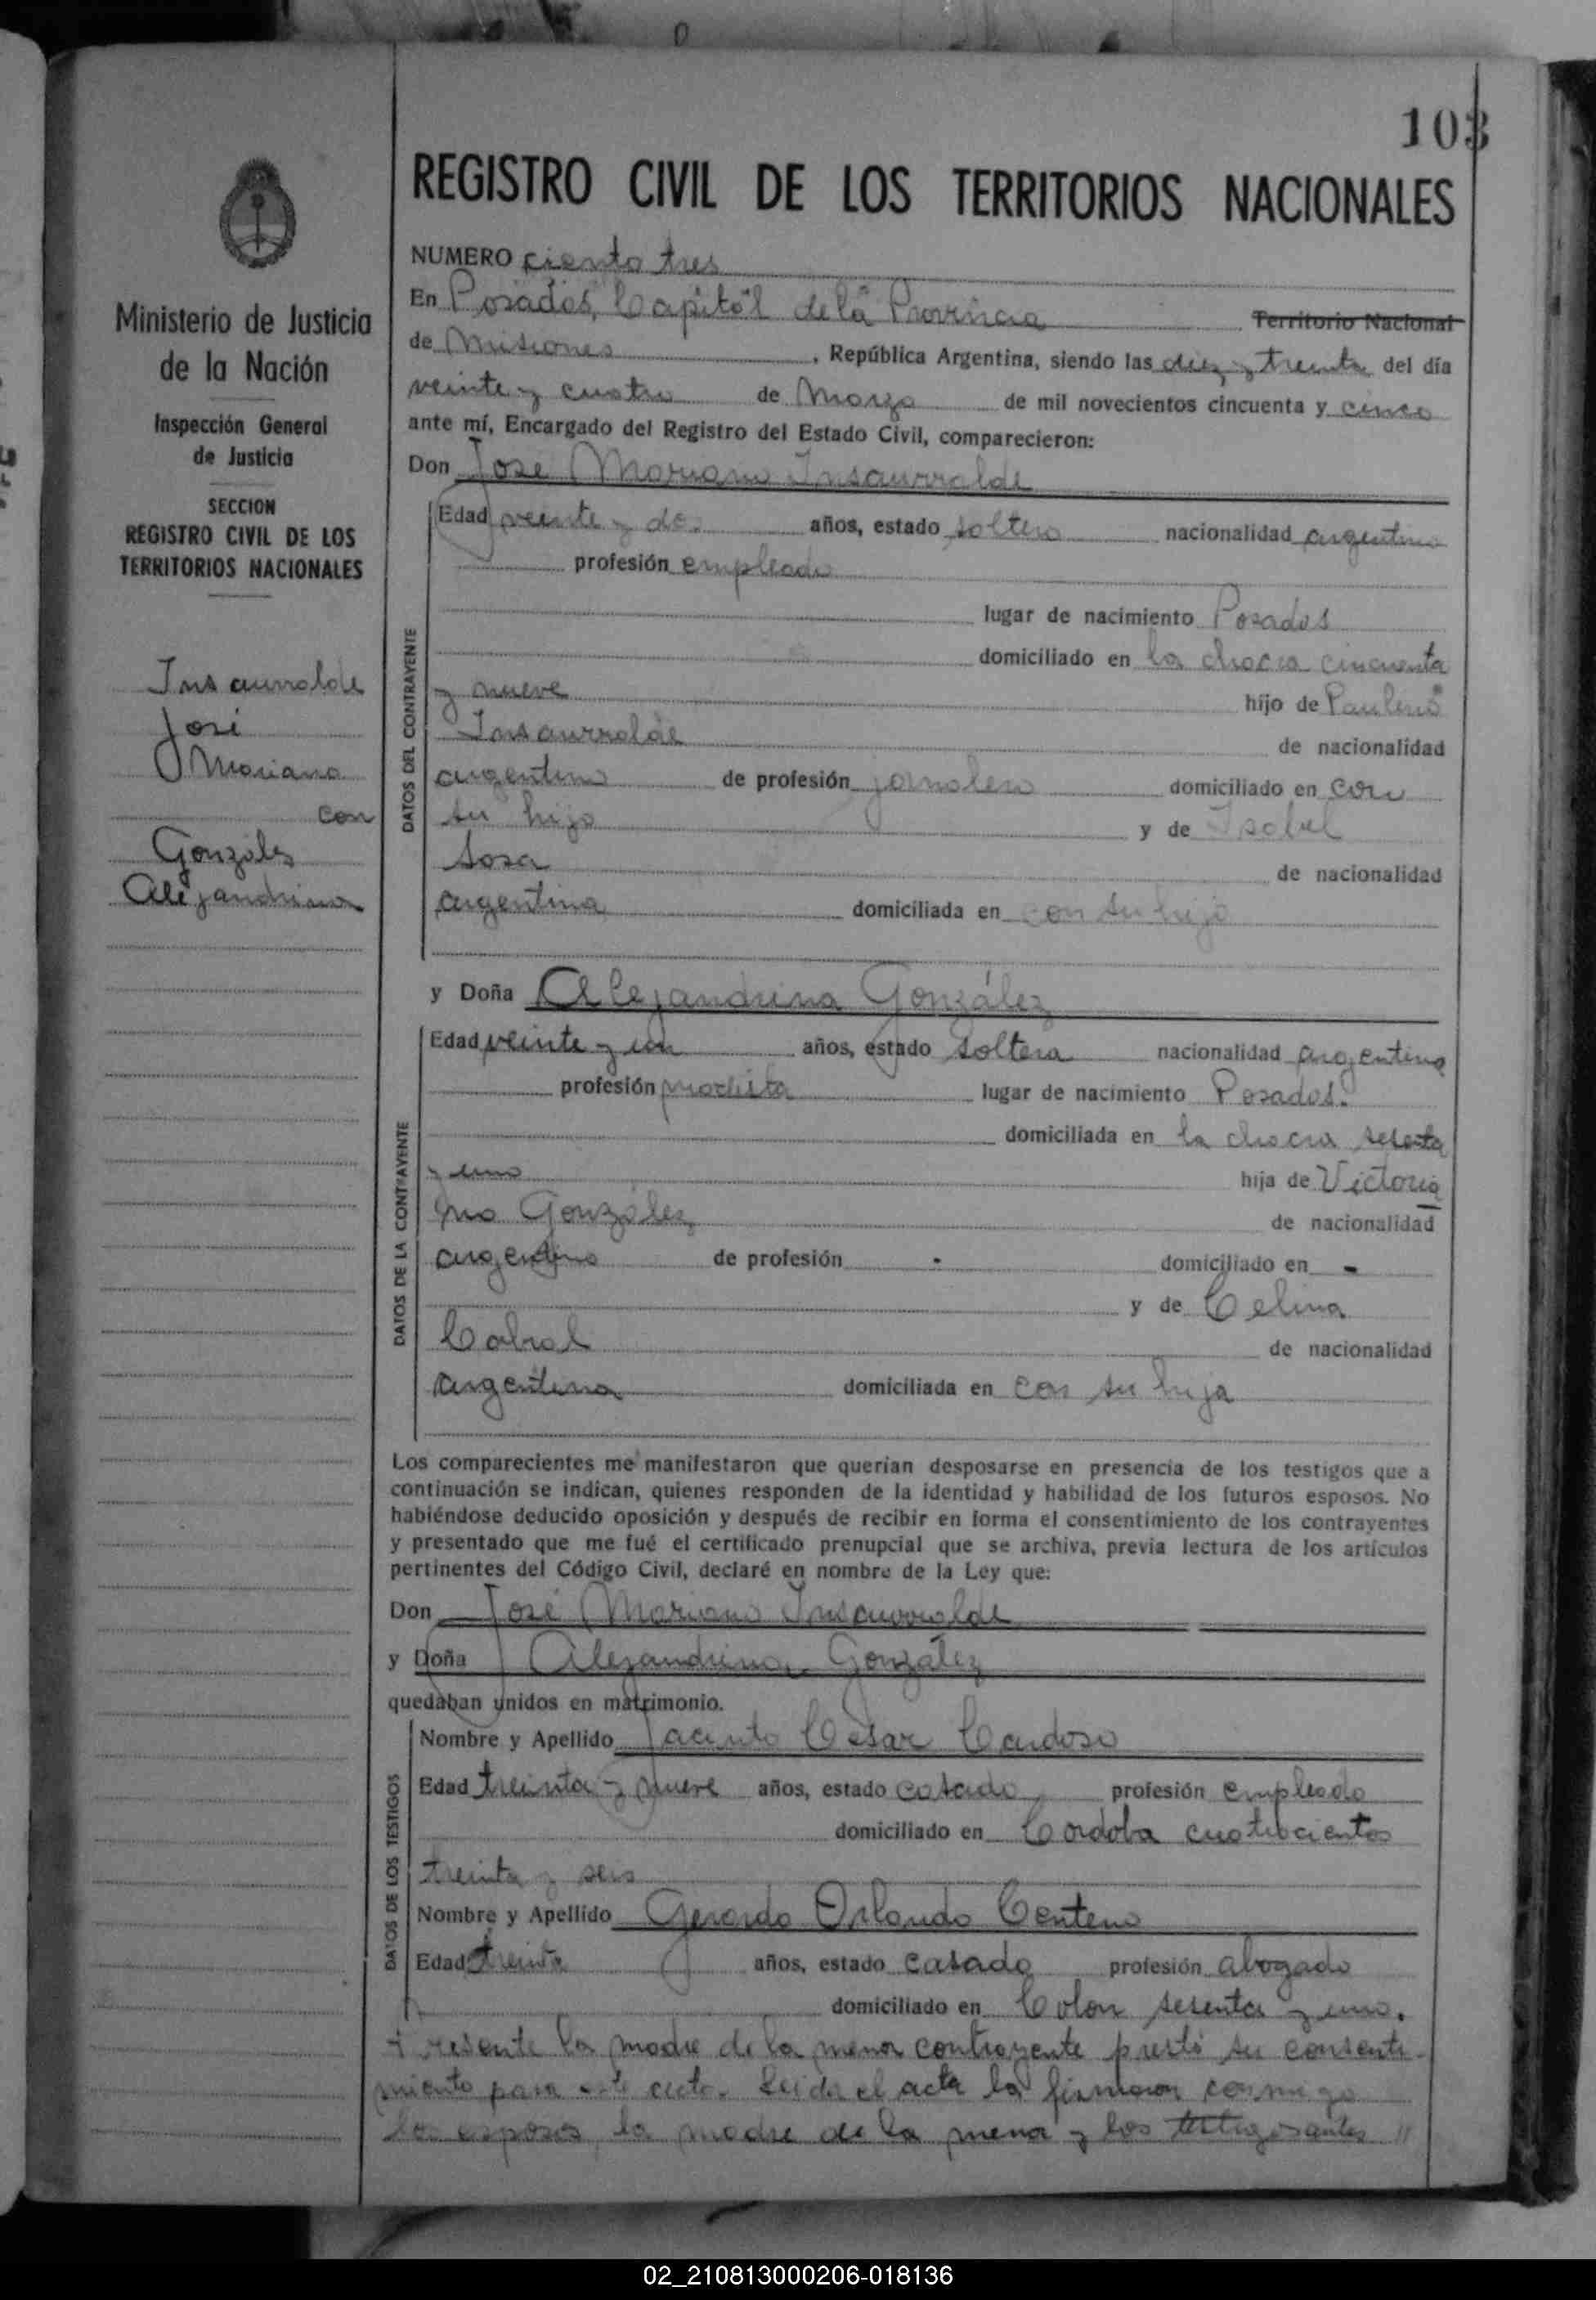 103
REGISTRO CIVIL DE LOS TERRITORIOS NACIONALES
Ministerio de Justicia
de la Nación
Inspección General
de Justicia
SECCION
REGISTRO CIVIL DE LOS
TERRITORIOS NACIONALES
Insaurralde
José
Mariano
con
Gonzáles
Alejandrina
NUMERO ciento tres
En Posadas, Capital de la Provincia Territorio Nacional
de Misiones, República Argentina, siendo las diez y treinta del día
veinte y cuatro de Marzo de mil novecientos cincuenta y cinco
ante mí, Encargado del Registro del Estado Civil, comparecieron:
Don José Mariano Insaurralde
DATOS DEL CONTRAYENTE
Edad veinte y dos años, estado soltero nacionalidad argentino
profesión empleado
lugar de nacimiento Posadas
domiciliado en la chacra cincuenta
y nueve hijo de Paulino
Insaurralde de nacionalidad
argentino de profesión jornalero domiciliado en con
su hijo y de Isabel
Sosa de nacionalidad
argentina domiciliada en con su hijo
y Doña Alejandrina González
DATOS DE LA CONTRAYENTE
Edad veinte y un años, estado soltera nacionalidad argentina
profesión modista lugar de nacimiento Posadas.
domiciliada en la chacra sesenta
y uno hija de Victoria
no González de nacionalidad
argentino de profesión - domiciliado en -
y de Celina
Cabral de nacionalidad
argentina domiciliada en con su hija
Los comparecientes me manifestaron que querían desposarse en presencia de los testigos que a
continuación se indican, quienes responden de la identidad y habilidad de los futuros esposos. No
habiéndose deducido oposición y después de recibir en forma el consentimiento de los contrayentes
y presentado que me fué el certificado prenupcial que se archiva, previa lectura de los artículos
pertinentes del Código Civil, declaré en nombre de la Ley que:
Don José Mariano Insaurralde
y Doña Alejandrina González
quedaban unidos en matrimonio.
DATOS DE LOS TESTIGOS
Nombre y Apellido Jacinto César Cardoso
Edad treinta y nueve años, estado casado profesión empleado
domiciliado en Cordoba cuatrocientos
treinta y seis
Nombre y Apellido Gerardo Orlando Centeno
Edad treinta años, estado casado profesión abogado
domiciliado en Colon sesenta y uno.
Presente la madre de la menor contrayente prestó su consenti-
miento para este acto. Leida el acta la firmaron conmigo
los esposos, la madre de la menor y los testigos antes //
02_210813000206-018136